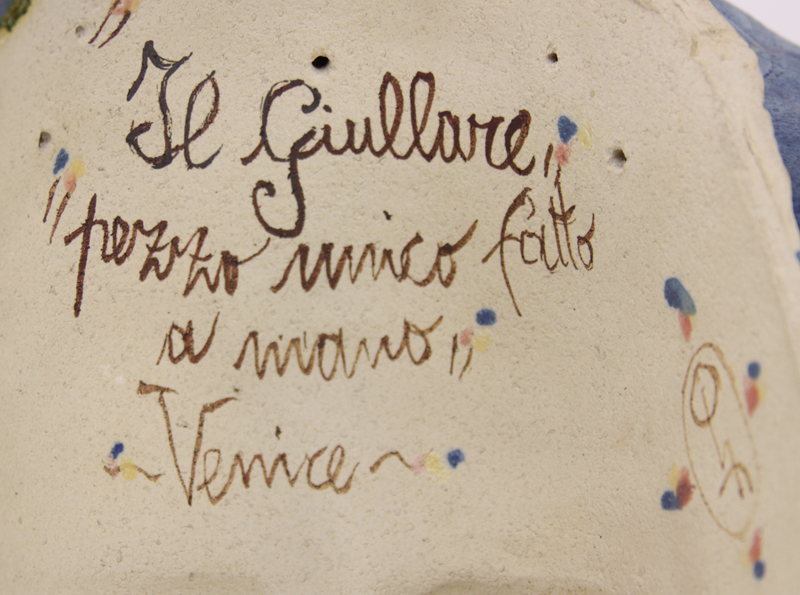 Il Giullare„
"pezzo unico fatto
a mano„
~ Venice ~